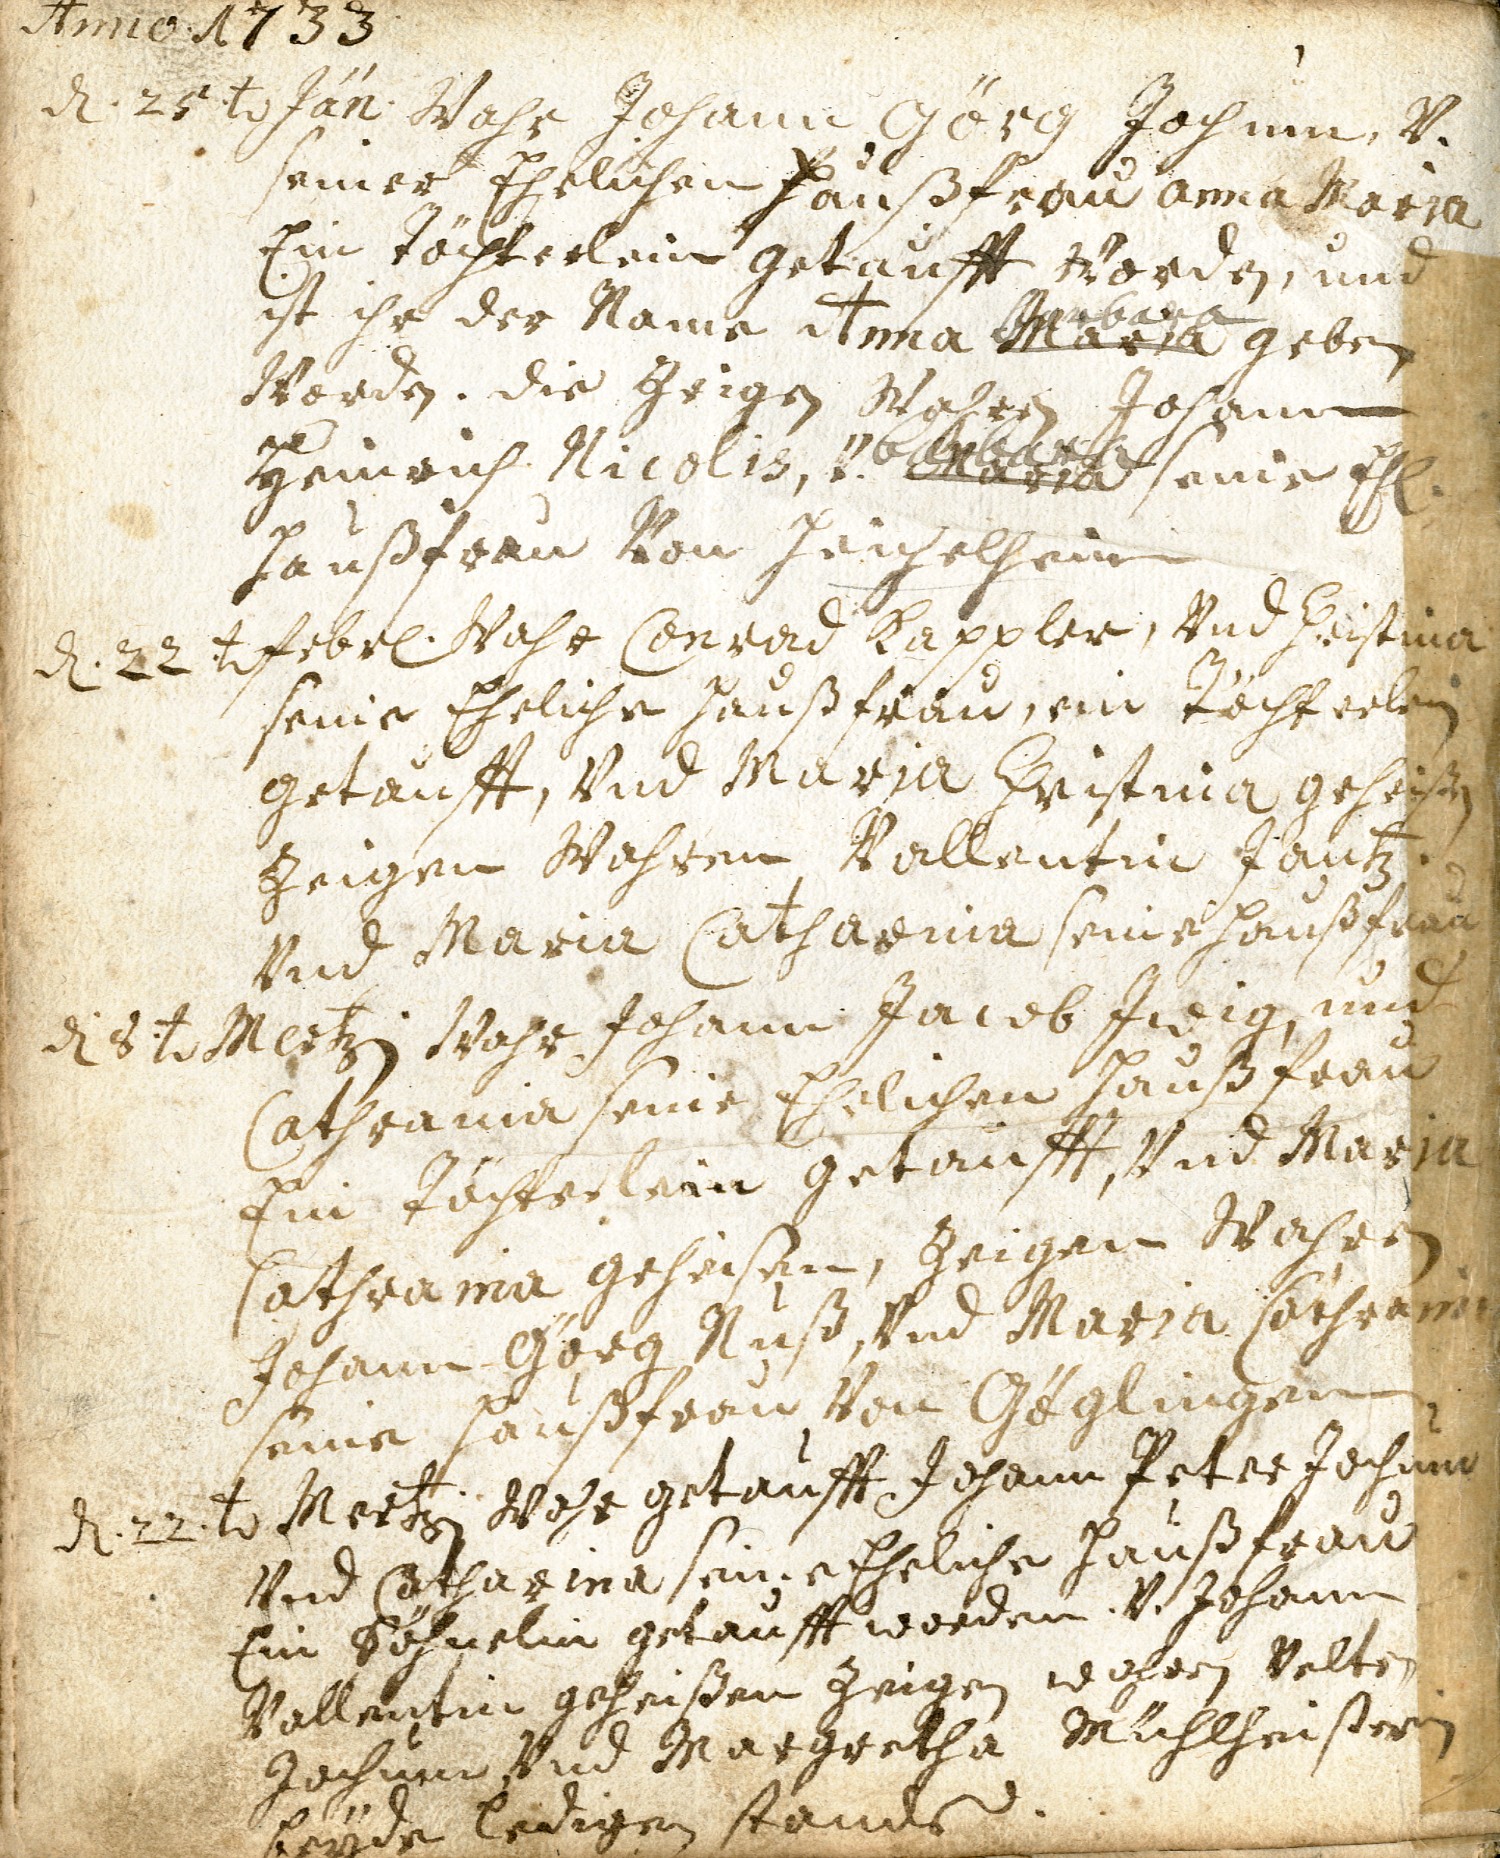 Anno 1733
d. 25 t Jän. Wahr Johann Görg Jochum, V.
seiner Ehelichen Haußfrau Anna Maria
Ein Töchterlein getaufft Worden, und
ist ihr der Name Anna Maria Barbara geben
Worden. die Zeigen Wahren Johann
Heinrich Nicolis, V. Maria barbara seine Ehl.
Haußfrau Von Heichelheim
d. 22 t febrl. Wahr Conrad Kappler, Vnd Cristina
seine Eheliche Haußfrau, ein Töchterlein
getaufft, Vnd Maria Cristina geheißen
Zeigen Wahren Vallentin Jantz
Vnd Maria Catharina seine Haußfrau
d. 8 t Mertz Wahr Johann Jacob und
Cathrania seine Ehelichen Haußfrau
Ein Töchterlein getaufft, Vnd Maria
Cathrania geheisen, Zeigen Wahren
Johann Görg Nuß, Vnd Maria Cathrania
seine Haußfrau Von Göglingen
d. 22. t Mertz Wahr getaufft Johann Peter Jochum
Vnd Catharina seine Eheliche Haußfrau
Ein Söhnelin getaufft worden. V. Johann
Vallentin geheißen Zeigen wahren Velten
Jochum Vnd Margretha Mühlheisterin
beyde ledigen stands.